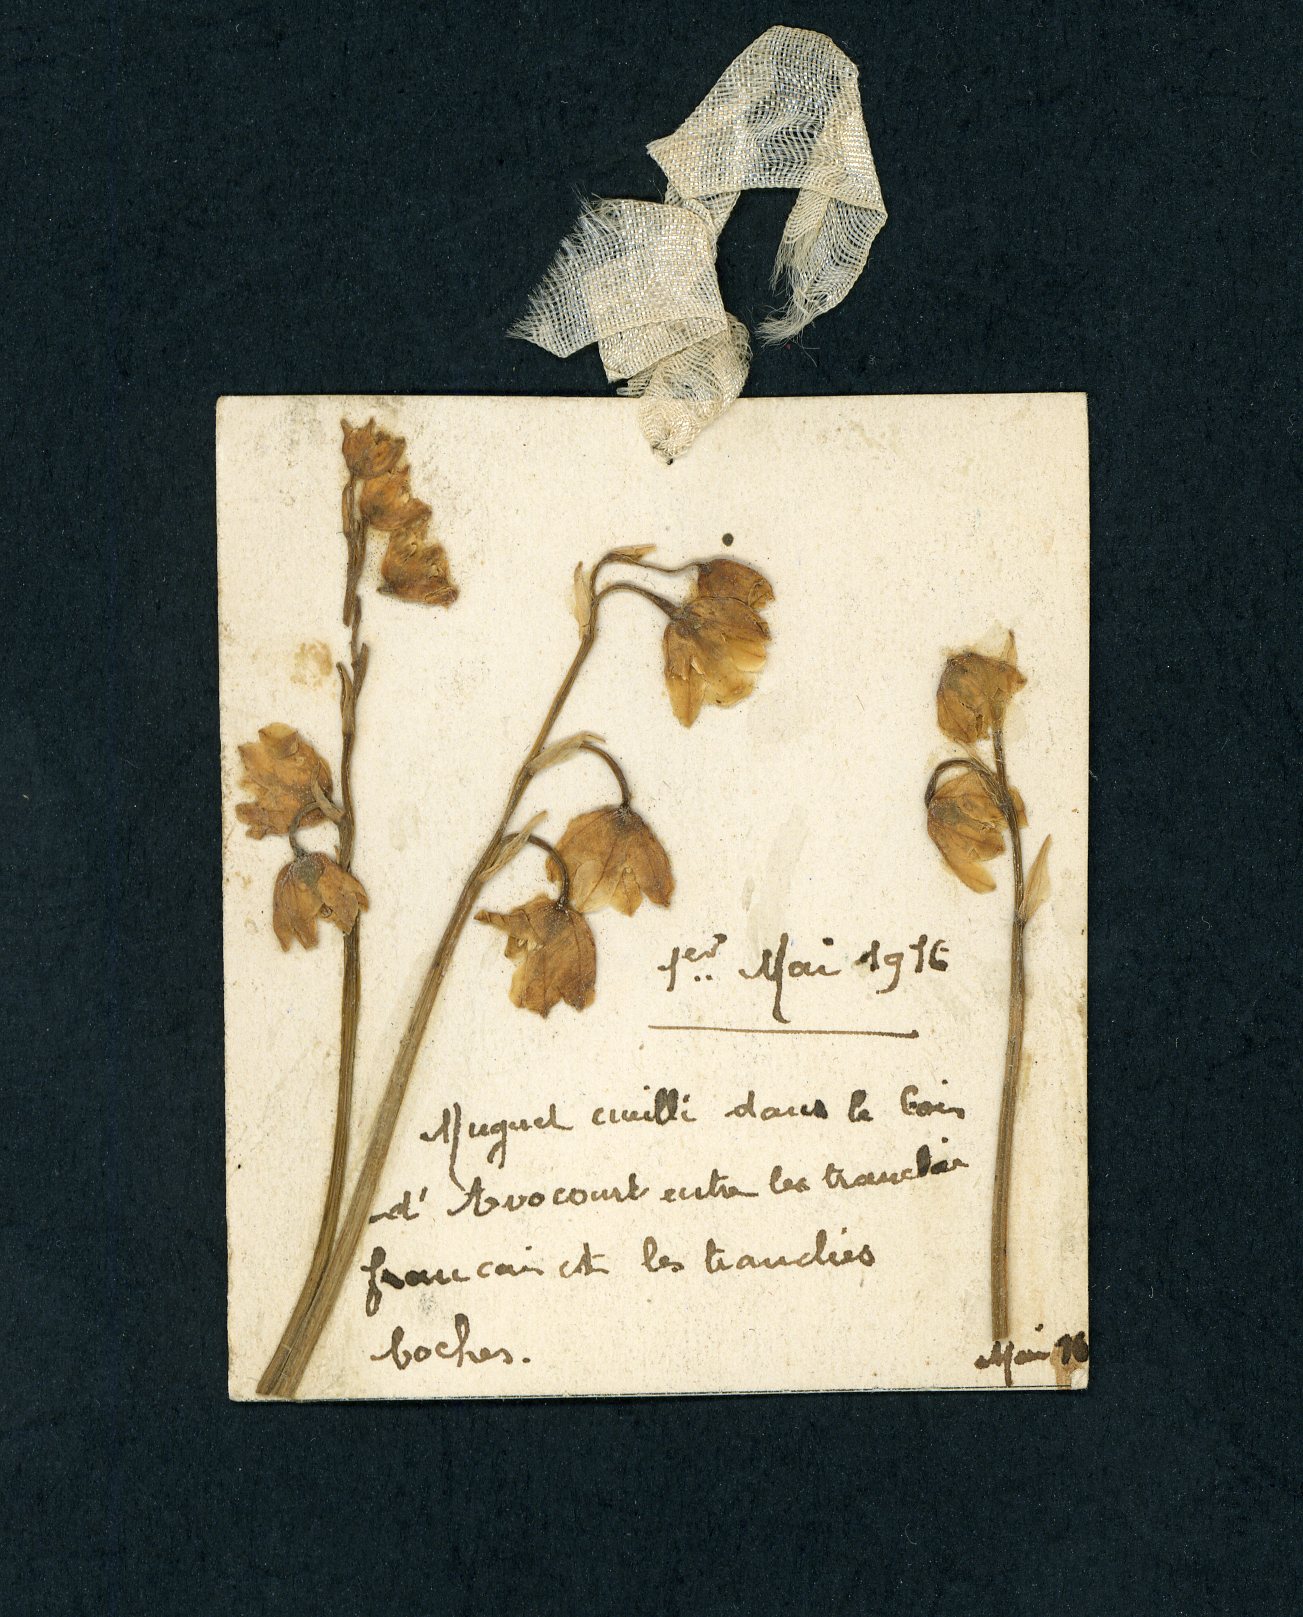 1er Mai 1916
Muguet cueilli dans le bois
d'Avocourt entre les tranchées
francais et les tranchées
boches.
Mai 16